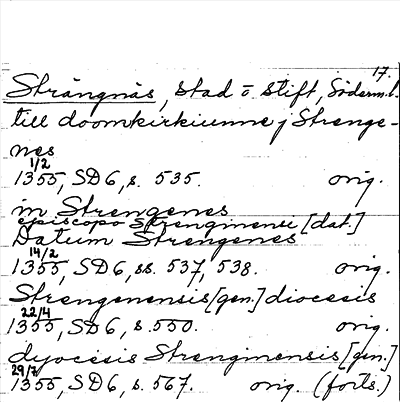 17.
Strängnäs, stad o. stift, Söderm.l.
till doomkirkiunne j Strenge-
nes
1/2
1355, SD6, s. 535. orig.
in Strengenes
episcopo Strenginensi [dat.]
Datum Strengenes
14/2
1355, SD6, ss. 537, 538. orig.
Strengenensis [gen.] diocesis
22/4
1355, SD6, s. 550. orig.
dyocesis Strenginensis [gen.]
29/7
1355, SD6, s. 567. orig. (forts.)